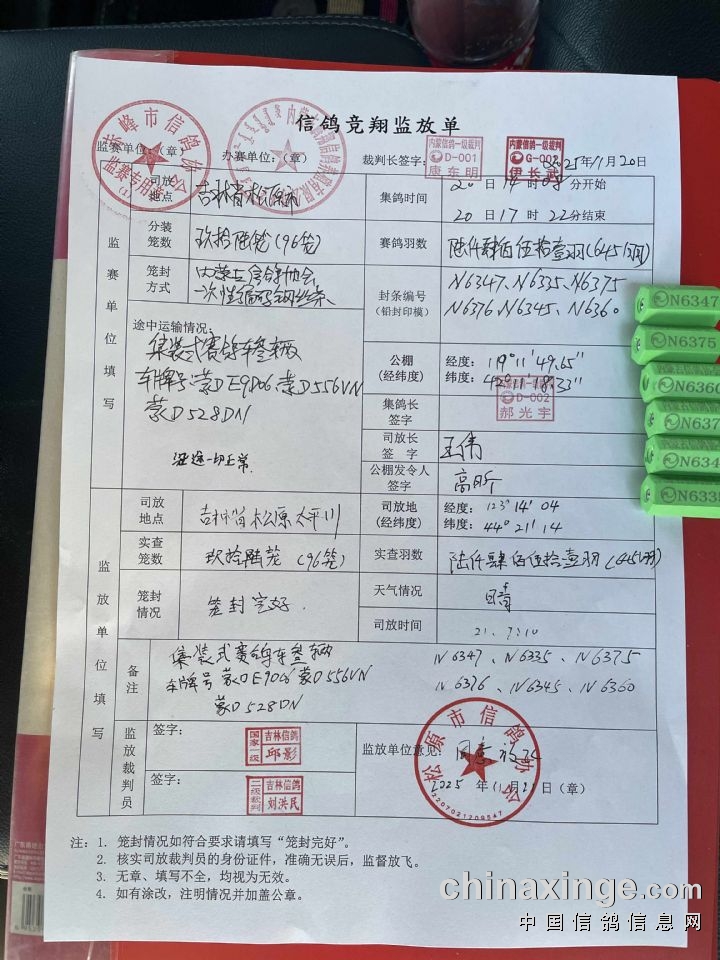 信鸽竞翔监放单
赤峰市信鸽协会
监赛专用章
(1)
监赛单位：（章）
办赛单位：（章）
裁判长签字：
内蒙信鸽一级裁判
D-001
唐东明
内蒙信鸽一级裁判
伊长武
2025年11月20日
监赛单位填写
司放地点
吉林省松原市
集鸽时间
20日14时08分开始
20日17时22分结束
分装笼数
玖拾陆笼(96笼)
赛鸽羽数
陆仟肆佰伍拾壹羽(6451羽)
笼封方式
一次性编码钢丝条
封条编号
(铅封印模)
N6347、N6335、N6375
N6376、N6345、N6360
途中运输情况：
集装式赛鸽车叁辆
车牌号：蒙DE9D06、蒙D556VN
蒙D528DN
沿途一切正常.
公棚
(经纬度)
经度：119°11′49.65″
纬度：42°11′18.33″
集鸽长签字
D-002
郝光宇
司放长签字
王伟
公棚发令人签字
高昕
监放单位填写
司放地点
吉林省松原太平川
司放地
(经纬度)
经度：123°14′04
纬度：44°21′14
实查笼数
玖拾陆笼(96笼)
实查羽数
陆仟肆佰伍拾壹羽(6451羽)
笼封情况
笼封完好.
天气情况
晴
司放时间
21.7:10
备注
集装式赛鸽车叁辆
车牌号蒙DE9D06蒙D556VN
蒙D528DN
N6347、N6335、N6375
N6376、N6345、N6360
监放裁判员
签字：
国家一级
吉林信鸽
邱影
签字：
二级裁判
吉林信鸽
刘洪民
监放单位意见：同意放飞
2025年11月21日（章）
松原市信鸽协会
2207021209547
注：1. 笼封情况如符合要求请填写“笼封完好”。
2. 核实司放裁判员的身份证件，准确无误后，监督放飞。
3. 无章、填写不全，均视为无效。
4. 如有涂改，注明情况并加盖公章。
N6347
N6375
N6360
N637
N634
N6335
chinaxinge.com
中国信鸽信息网